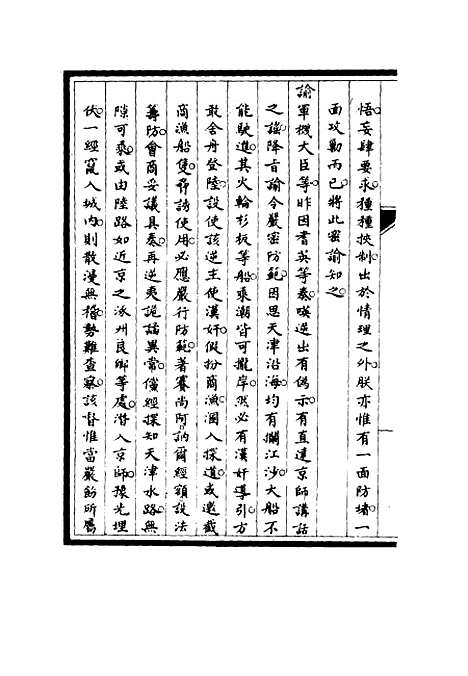 悟妄肆要求種種挾制出於情理之外朕亦惟有一面防堵一
面攻勦而已將此密諭知之
諭軍機大臣等昨因耆英等奏暎逆出有偽示有直達京師講話
之謠降旨諭令嚴密防範因思天津沿海均有攔江沙大船不
能駛進其火輪杉板等船乘潮皆可攏岸然必有漢奸導引方
敢舍舟登陸設使該逆主使漢奸假扮商漁溷入探道或邀截
商漁船隻尋誘使用必應嚴行防範著賽尚阿訥爾經額設法
籌防會商妥議具奏再逆夷詭譎異常儻經探知天津水路無
隙可乘或由陸路如近京之涿州良鄉等處潛入京師豫先埋
伏一經竄入城內則散漫無稽勢難查察該督惟當嚴飭所屬